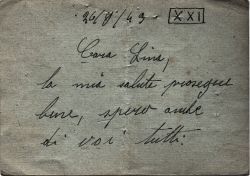 26/8/43 XXI
Cara Lina,
la mia salute prosegue
bene, spero anche
di voi tutti